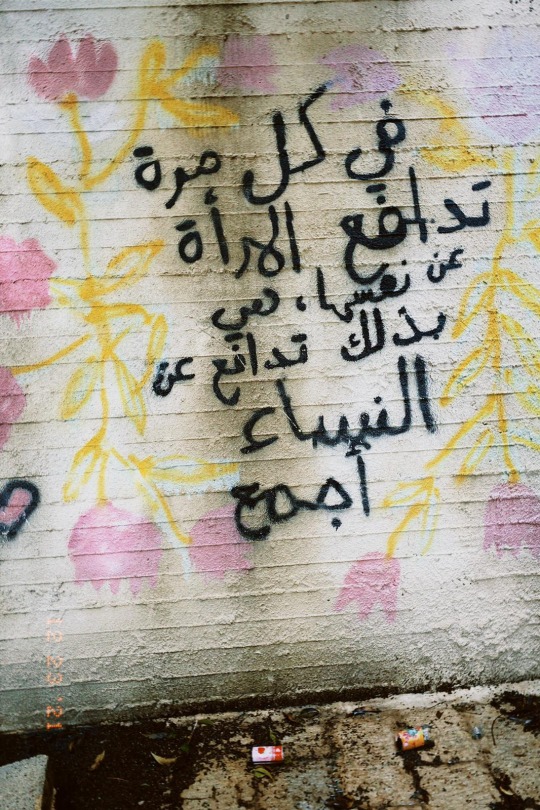 في كل مرة
تدافع المرأة
عن نفسها، هي
بذلك تدافع عن
النساء
أجمع
12 23 '21